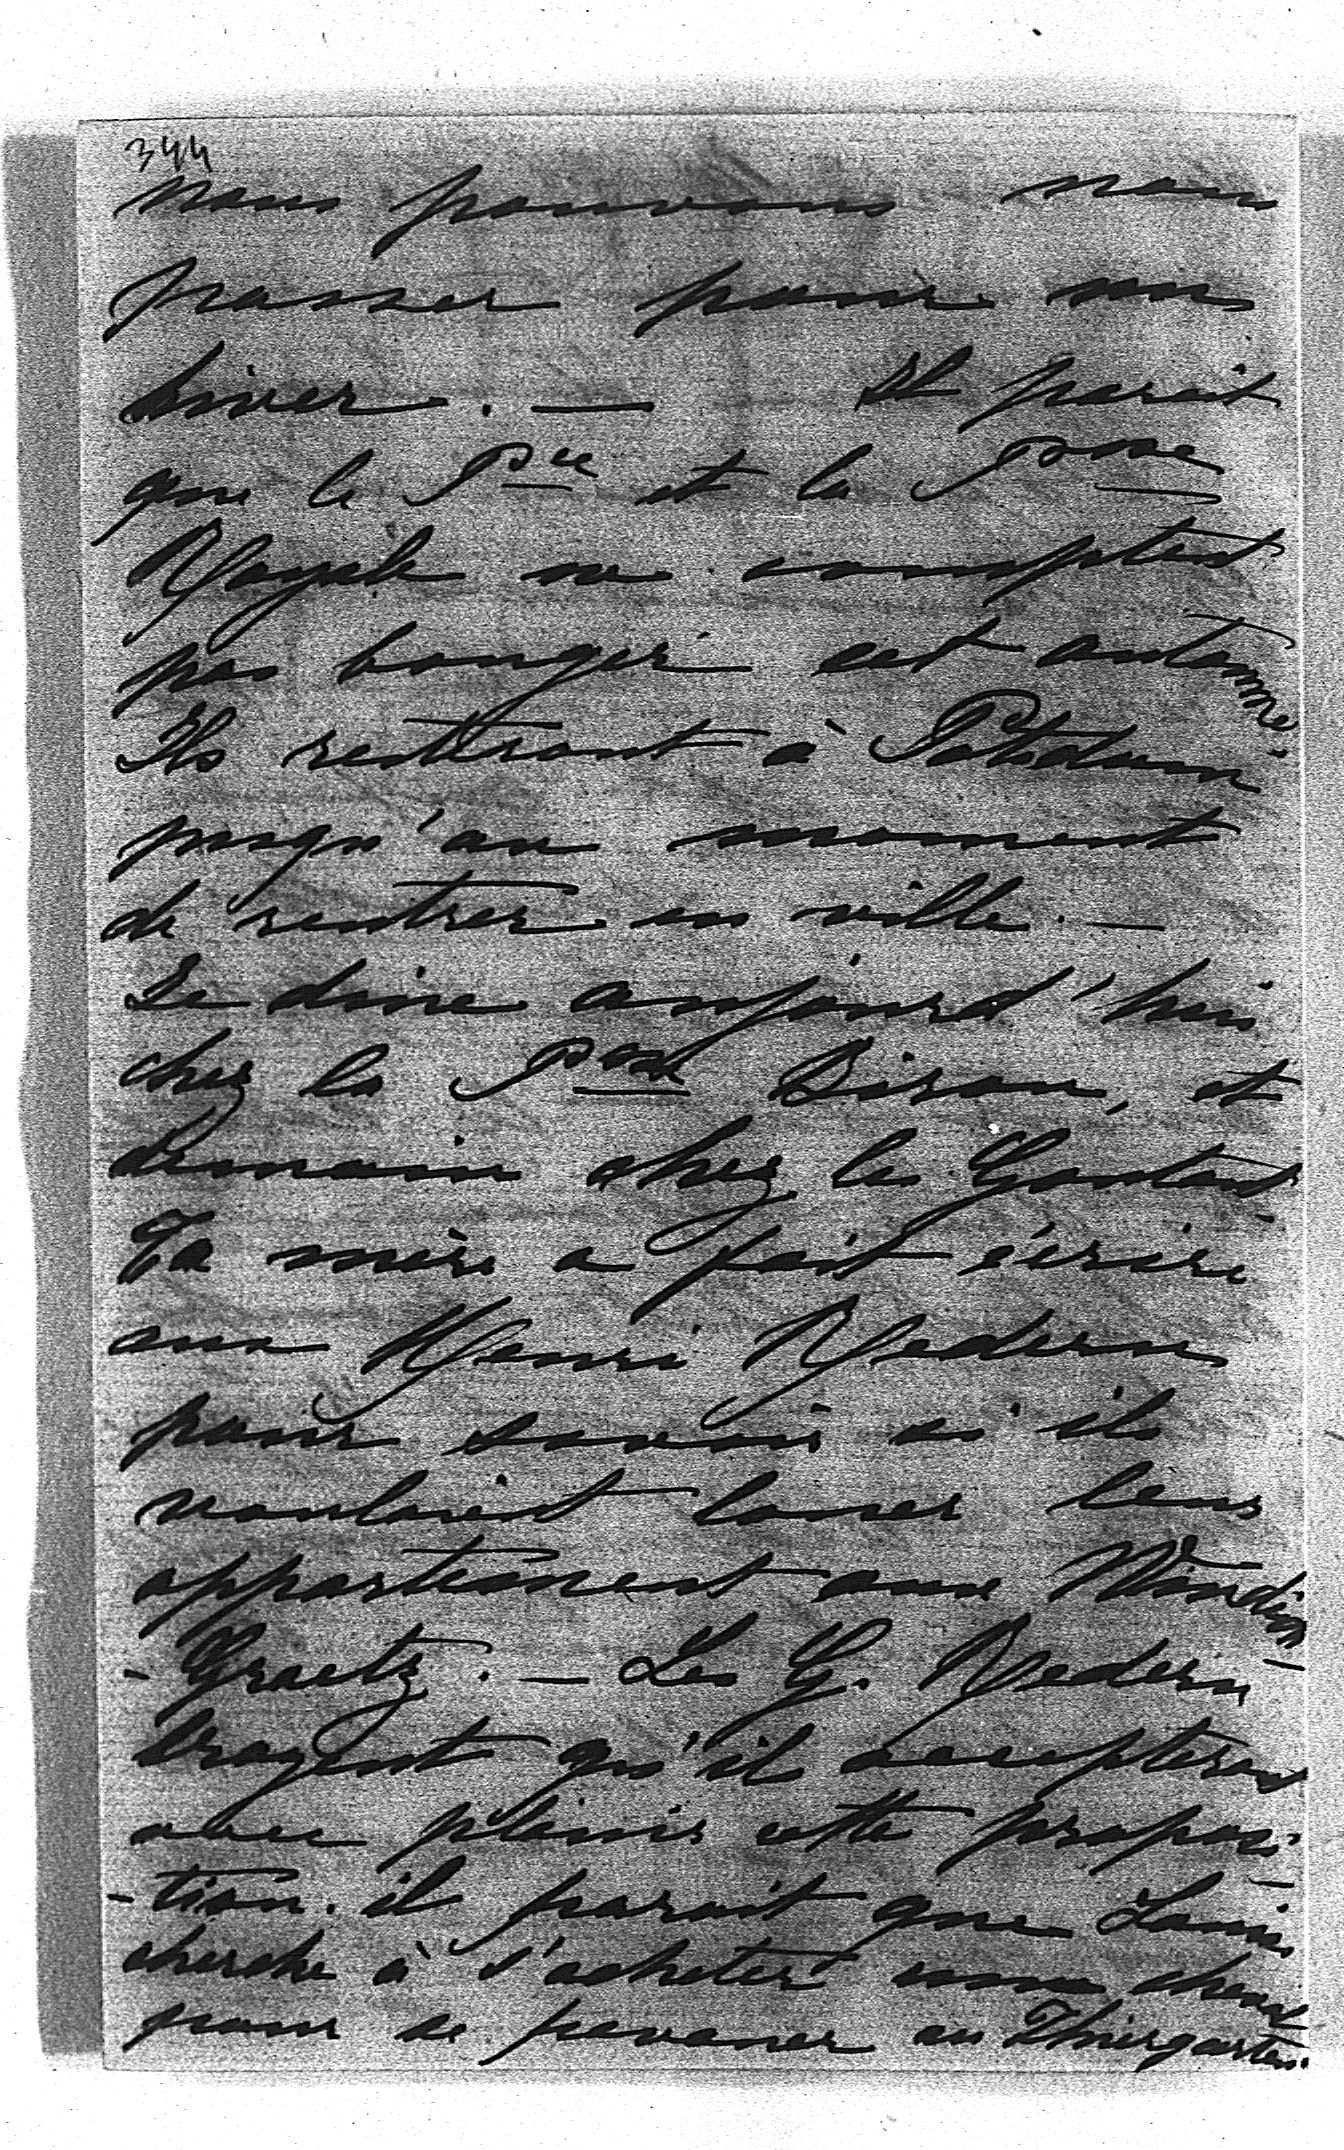 344
nous pouvons nous
passer pour un
hiver. — Il parait
que le Pce et la Psse
Royale ne comptent
pas bouger cet automne.
Ils resteront à Potsdam
jusqu'au moment
de rentrer en ville. —
Je dine aujourd'hui
chez la Psse Biron, et
demain chez les Gontaut
Ta mère a fait écrire
aux Henri Redern
pour savoir si ils
voulaient louer leur
appartement aux Windisch
-Graetz. — Les G. Redern
croyent qu'ils accepteront
avec plaisir cette proposi-
-tion. il parait que Louis
cherche à s'acheter un cheval
pour se pavaner au Thiergarten.